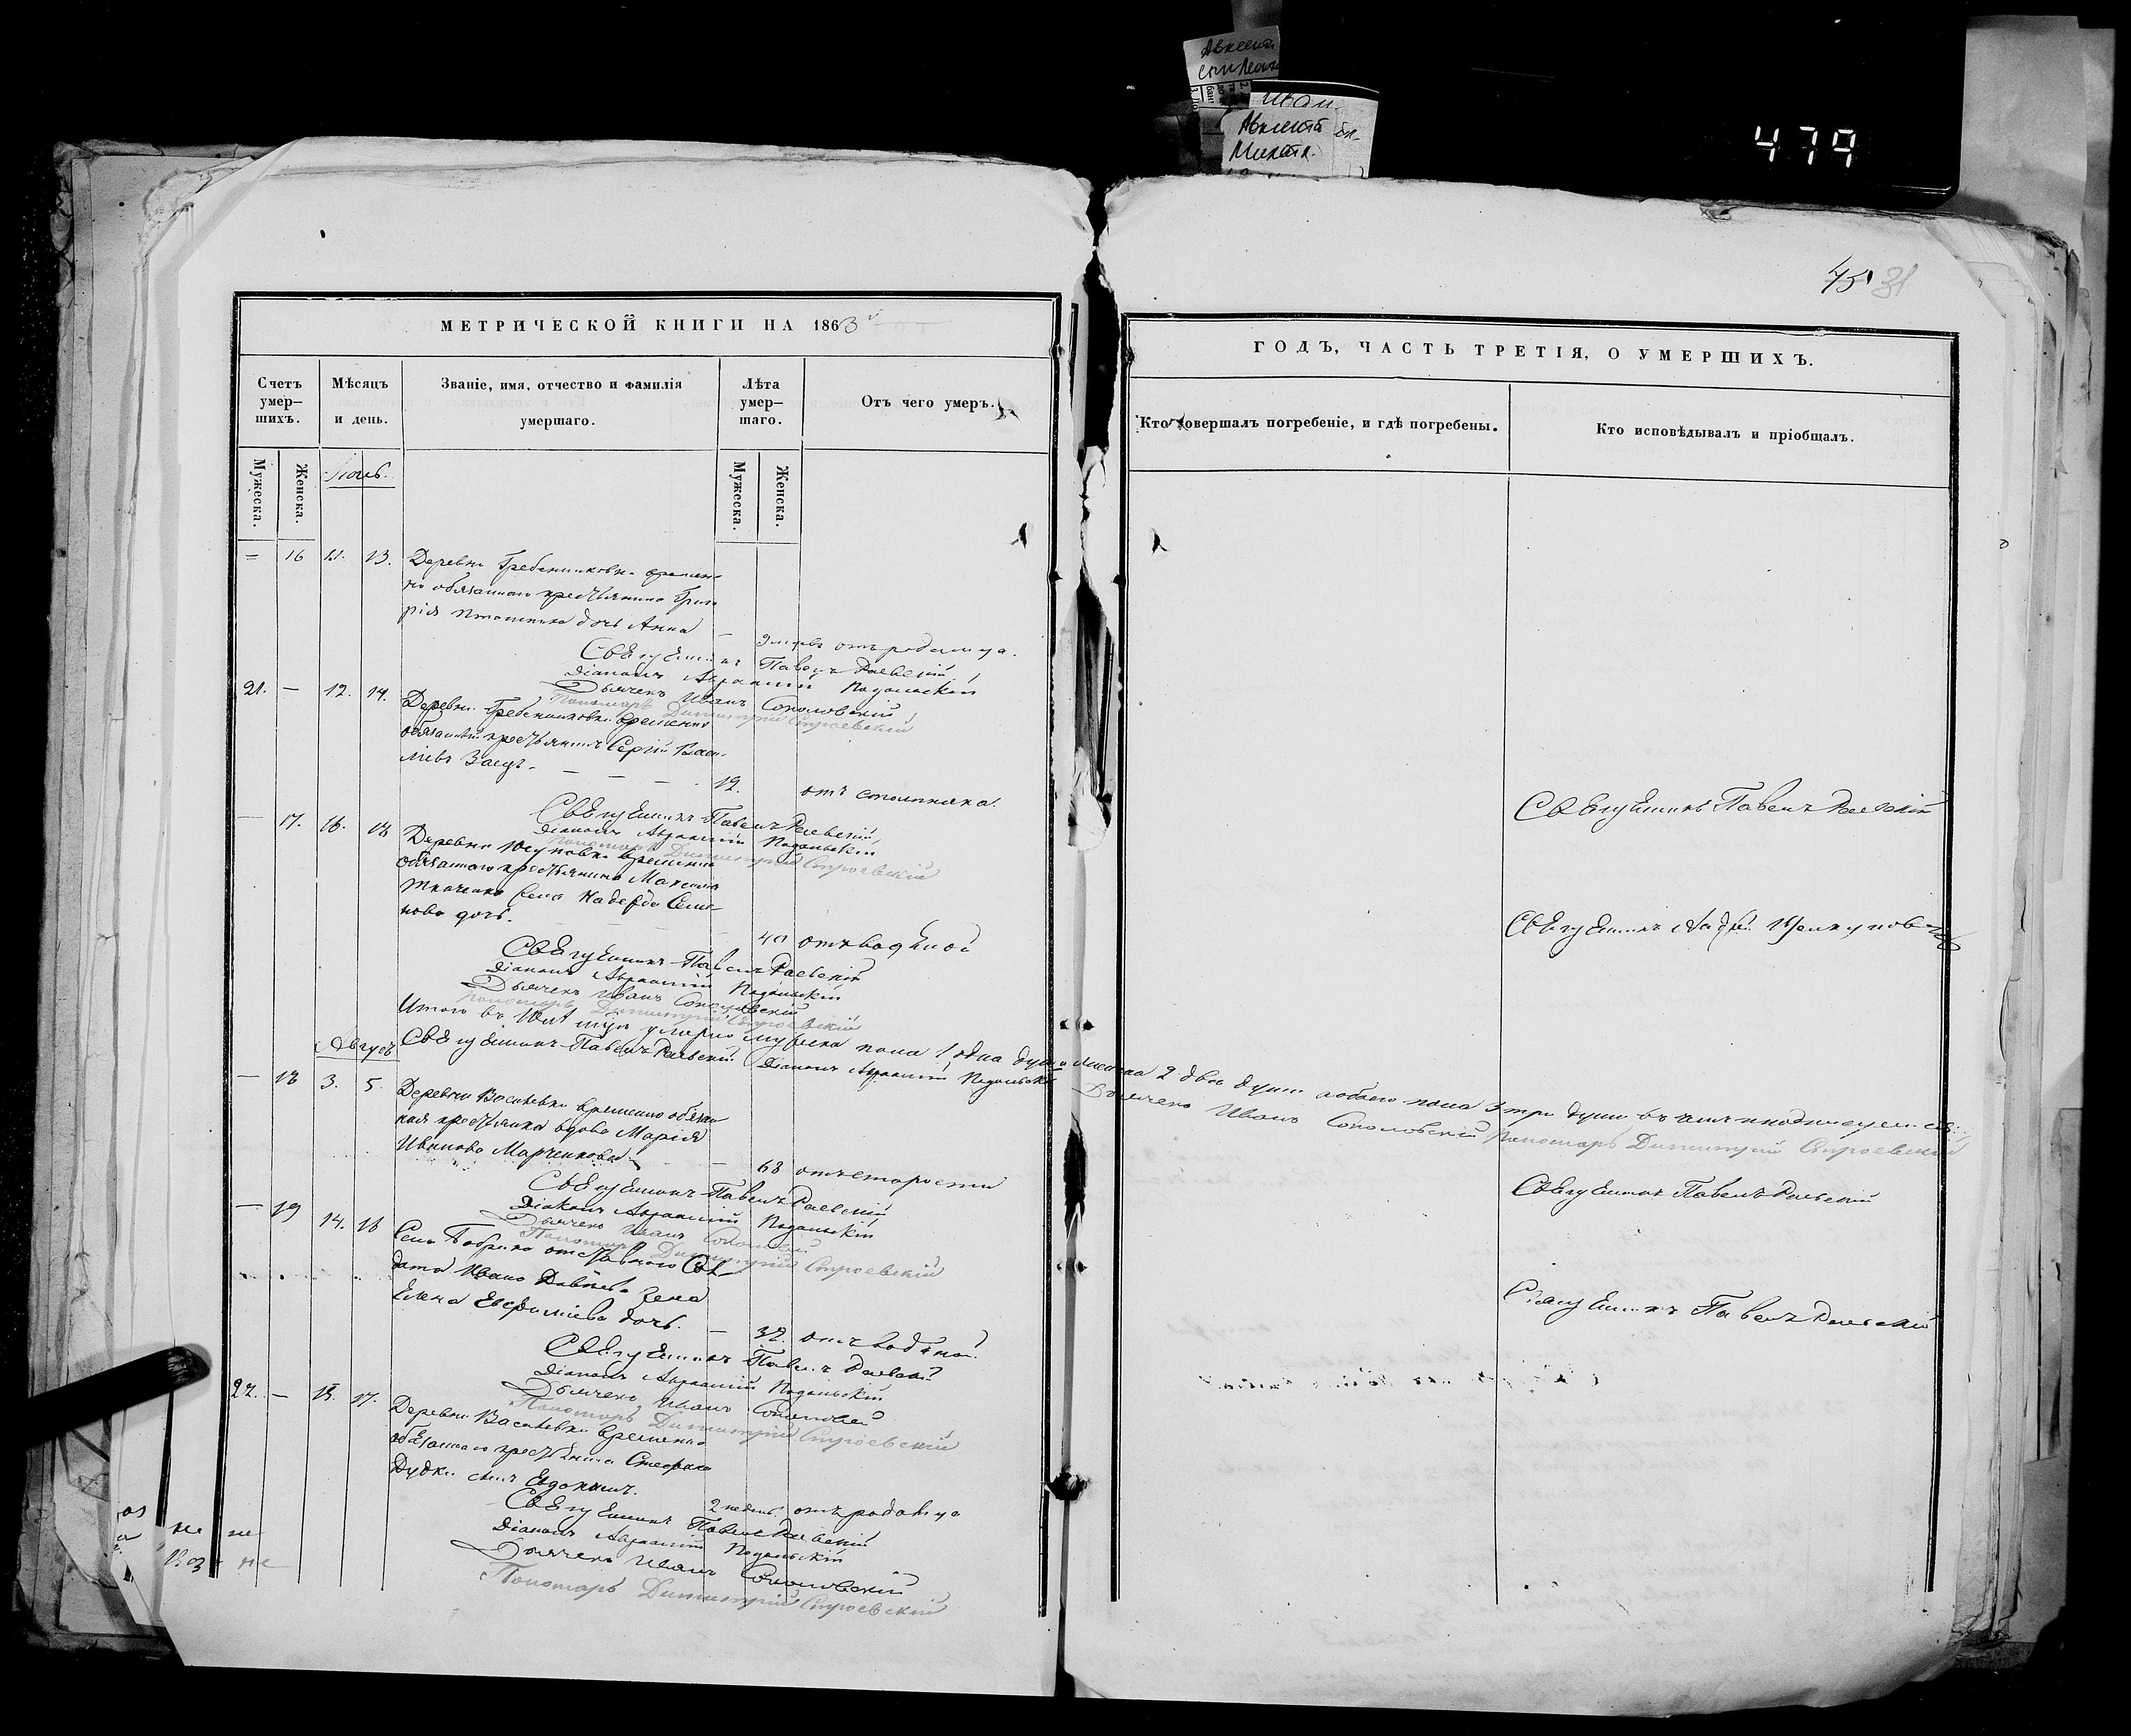 479
45 31
МЕТРИЧЕСКОЙ КНИГИ НА 1863й
ГОДЪ, ЧАСТЬ ТРЕТІЯ, О УМЕРШИХЪ.
Счетъ умер–шихъ.
Мѣсяцъ и день.
Званіе, имя, отчество и фамилія умершаго.
Лѣта умер–шаго.
Отъ чего умеръ.
Кто совершалъ погребеніе, и гдѣ погребены.
Кто исповѣдывалъ и пріобщалъ.
Мужеска.
Женска.
Мужеска.
Женска.
= 16 11. 13. Деревни Гребениковки времен
но обязаннаго крестьянина Григо
рія дочь Анна —
отъ родимца.
Священникъ Павелъ Раевскій
Діаконъ Авраамій Подольскій
Дьячекъ Иванъ Соколовскій
Пономарь Димитрій Строевскій
21. — 12. 14. Деревни Гребениковки временно
обязанный крестьянинъ Сергій Васи
ліевъ Заецъ — — — 12.
Священникъ Павелъ Раевскій
Священникъ Павелъ Раевскій
Діаконъ Авраамій Подольскій
Пономарь Димитрій Строевскій
— 17. 16. 18 Деревни Юсуповки временно
обязаннаго крестьянина Максима
Ткаченка жена Надежда Семе
нова дочь. 40 отъ водяной
Священникъ
Священникъ Павелъ Раевскій
Діаконъ Авраамій Подольскій
Дьячекъ Иванъ Соколовскій
Пономарь Димитрій Строевскій
Итого въ Іюлѣ м-цѣ умерло мужеска пола 1 одна душа женска 2 двѣ души обоего пола 3 три души въ чемъ и подписуемся:
Священникъ Павелъ Раевскій Діаконъ Авраамій Подольскій Дьячекъ Иванъ Соколовскій Пономарь Димитрій Строевскій
Августъ
— 18 3. 5. Деревни Васильевки временно обязан
ная крестьянка вдова Марія
Иванова Марченкова — 68 отъ старости
Священникъ Павелъ Раевскій
Священникъ Павелъ Раевскій
Діаконъ Авраамій Подольскій
Дьячекъ Иванъ
Пономарь Димитрій Строевскій
— 19 14. 16 Села Бобрика отставнаго Сол
дата Ивана жена
Елена Евфиміева дочь. — 32. отъ водяной.
Священникъ Павелъ Раевскій
Священникъ Павелъ Раевскій
Діаконъ Авраамій Подольскій
Дьячекъ Иванъ
Пономарь Димитрій Строевскій
22. — 15. 17. Деревни Васильевки временно
обязаннаго крестьянина Стефана
Дудки сынъ Евдокимъ.
2 недѣл. отъ родимца
Священникъ Павелъ Раевскій
Діаконъ Авраамій Подольскій
Дьячекъ Иванъ Соколовскій
Пономарь Димитрій Строевскій